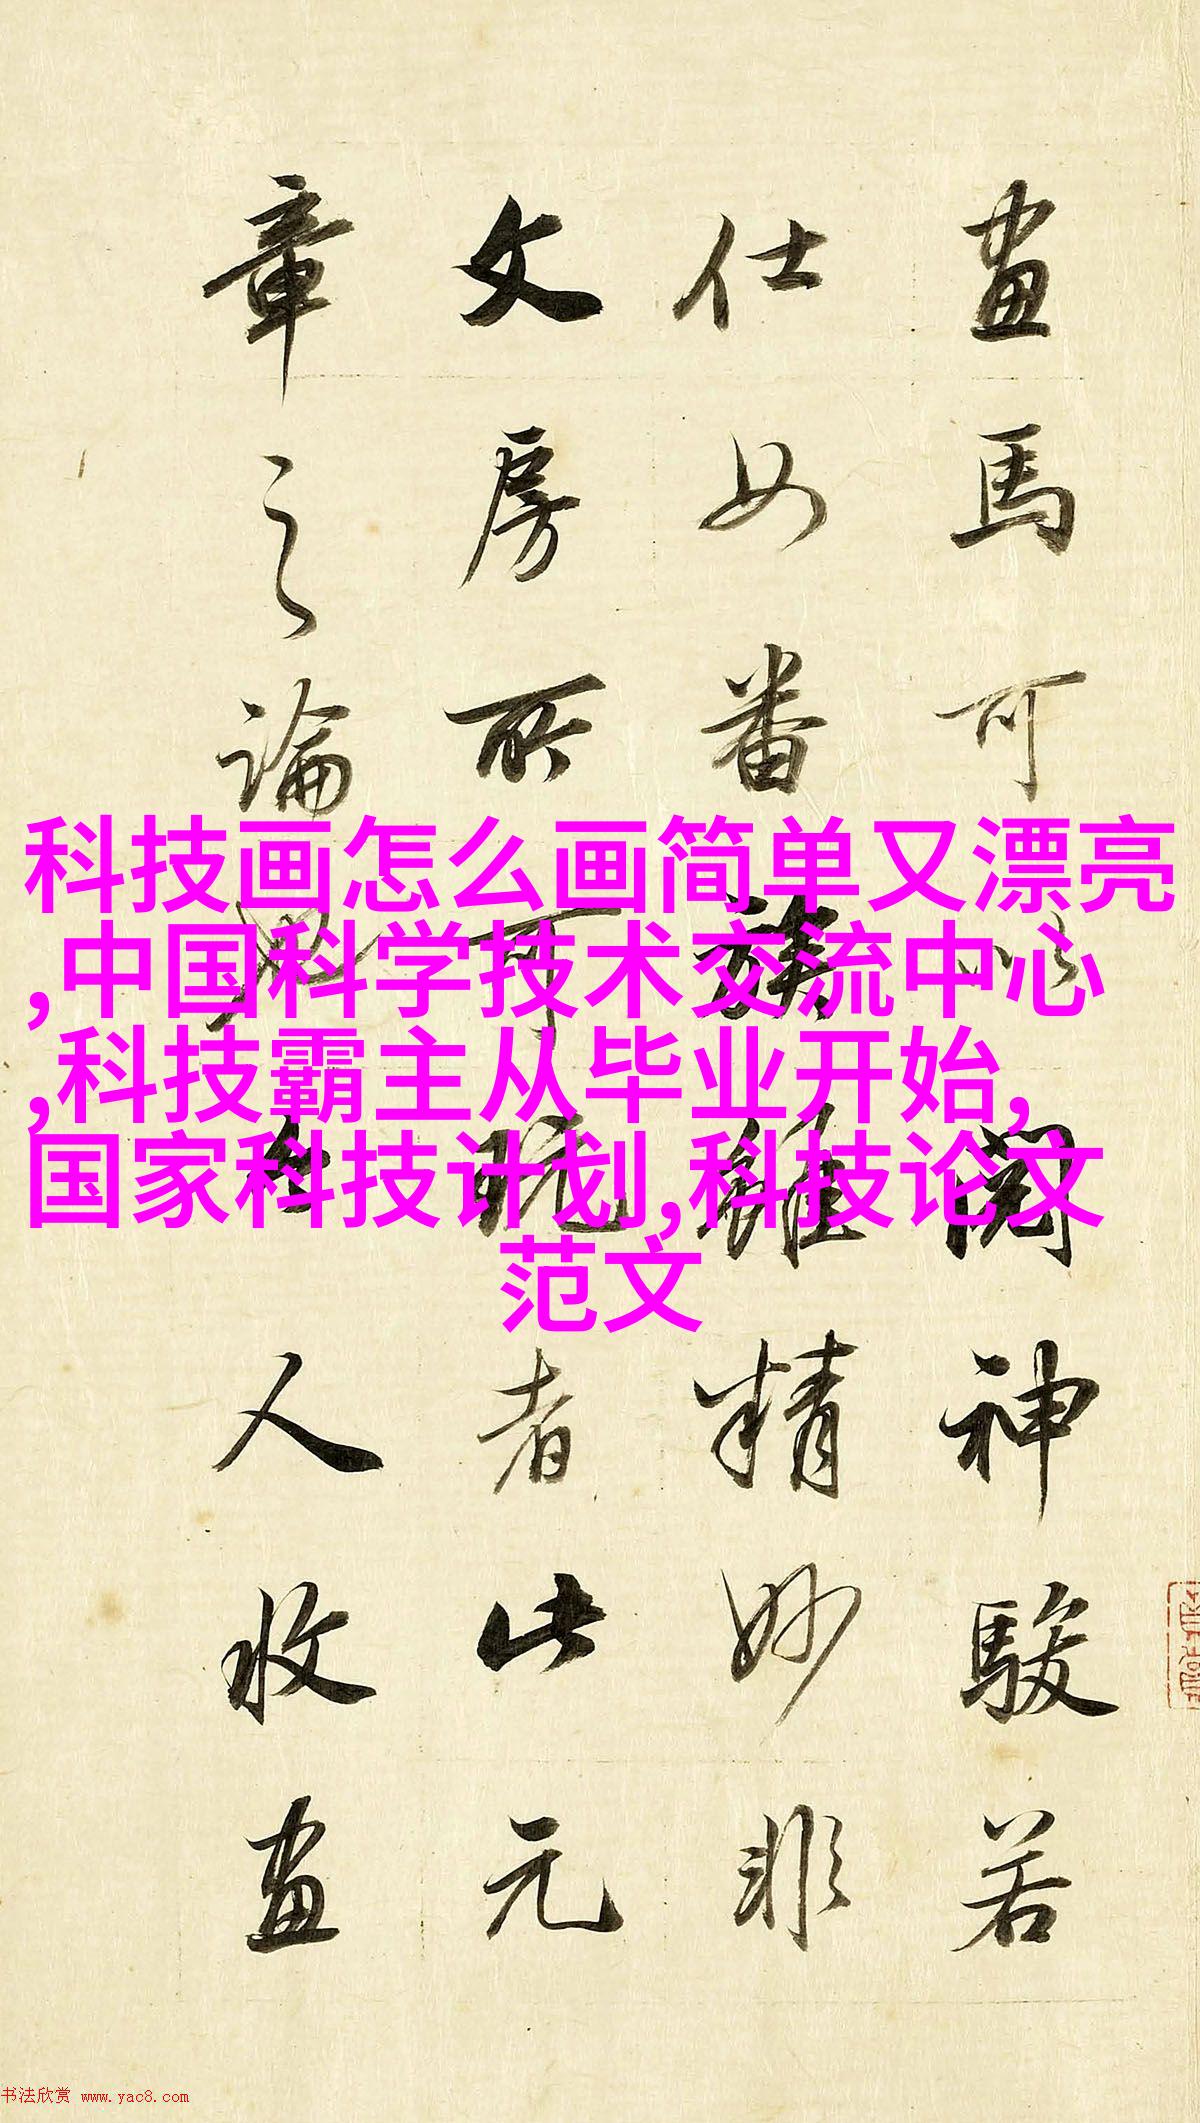 畫馬可以閱神駿若
仕女番族雖精妙非
文房所可玩者此元
章之論與今人收畫
科技画怎么画简单又漂亮
,中国科学技术交流中心
,科技霸主从毕业开始,
国家科技计划,科技论文
范文
书法欣赏 www.yac8.com